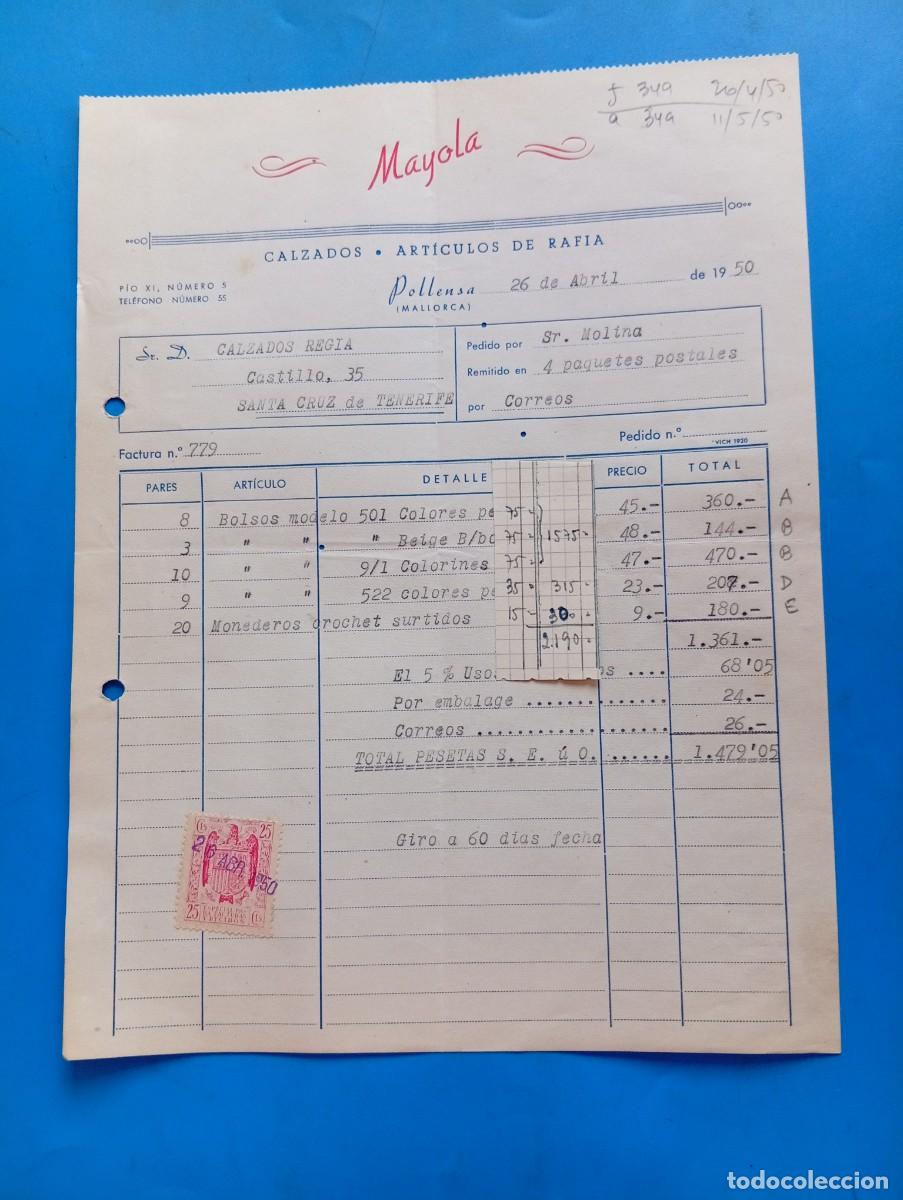 f 349 26/4/50
a 349 11/5/50
Mayola
CALZADOS • ARTÍCULOS DE RAFIA
PÍO XI, NÚMERO 5
TELÉFONO NÚMERO 55
Pollensa 26 de Abril de 1950
(MALLORCA)
Sr. D. CALZADOS REGIA
Castillo, 35
SANTA CRUZ de TENERIFE
Pedido por Sr. Molina
Remitido en 4 paquetes postales
por Correos
Factura n.º 779
Pedido n.º
VICH 1920
PARES ARTÍCULO DETALLE PRECIO TOTAL
8 Bolsos modelo 501 Colores pe 45.- 360.- A
3 " " " Beige B/bo 48.- 144.- B
10 " " 9/1 Colorines 47.- 470.- B
9 " " 522 colores pe 23.- 207.- D
20 Monederos crochet surtidos 9.- 180.- E
75-
75- 1575-
75-
35- 315-
15- 300-
2.190-
1.361.-
El 5 % Uso os .... 68'05
Por embalage .............. 24.-
Correos .................... 26.-
TOTAL PESETAS S. E. ú O. ...... 1.479'05
Giro a 60 dias fecha
Cts 25
26 ABR. 1950
ESPECIAL PARA
FACTURAS
Y RECIBOS
25 Cts
todocoleccion